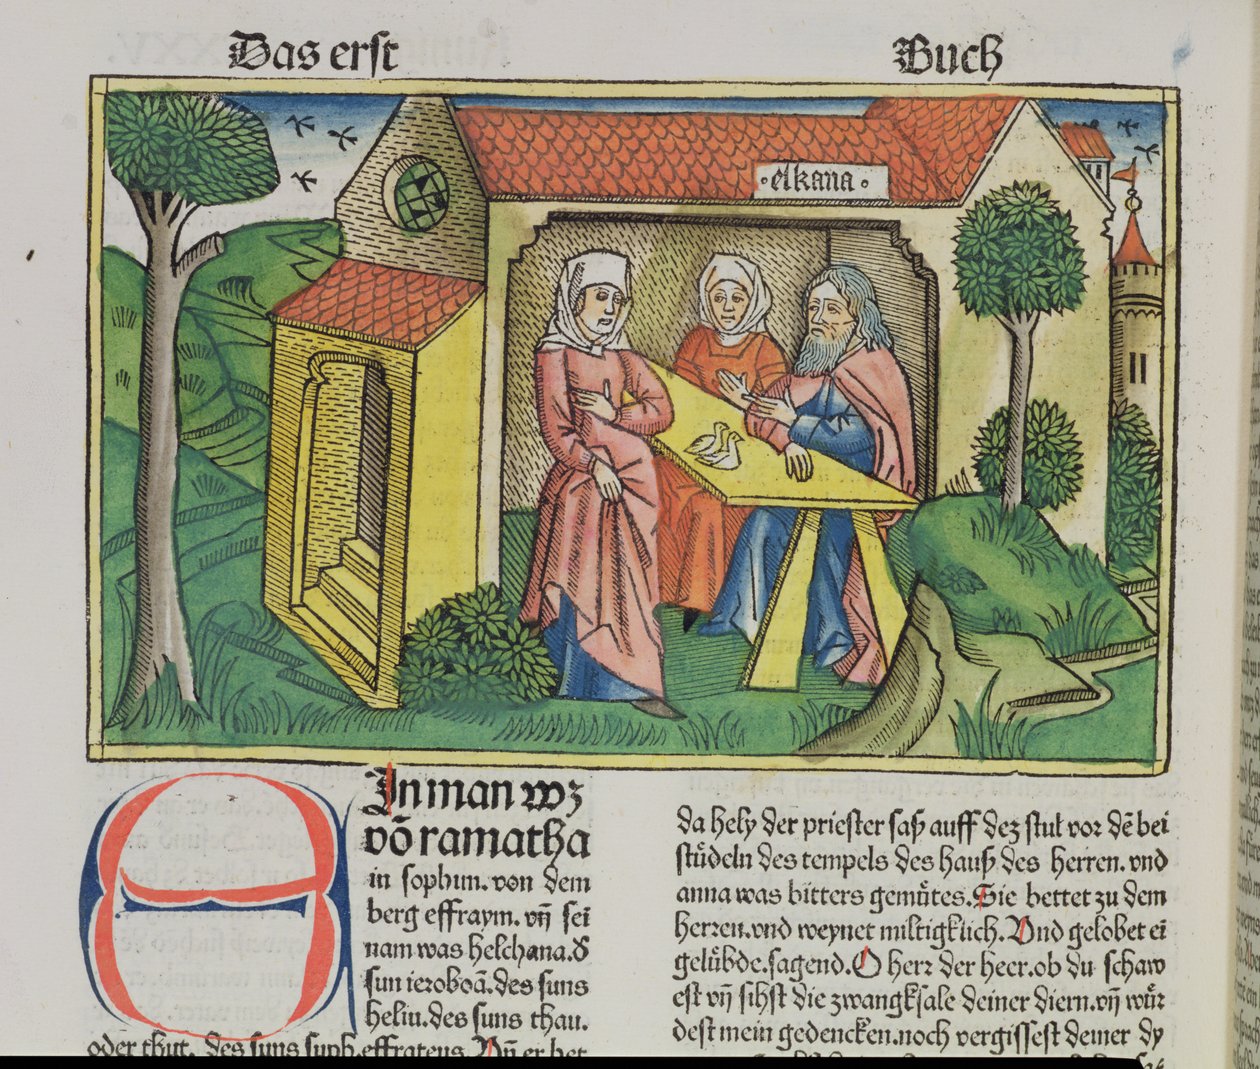 Das erst Buch
·elkana·
In man wz
võ ramatha
in sophim. von dem
berg effraym. vñ sei
nam was helchana. d
sun ieroboã. des suns
heliu. des suns thau.
oder thut. des suns suph. effrateus. Vñ er het
da hely der priester saß auff dez stul vor dẽ bei
stüdeln des tempels des hauß des herren. vnd
anna was bitters gemůtes. Sie bettet zu dem
herren. vnd weynet miltigklich. Vnd gelobet ei
gelübde. sagend. O herr der heer. ob du schaw
est vñ sihst die zwangksale deiner diern. vñ wür
dest mein gedencken. noch vergissest deiner dy